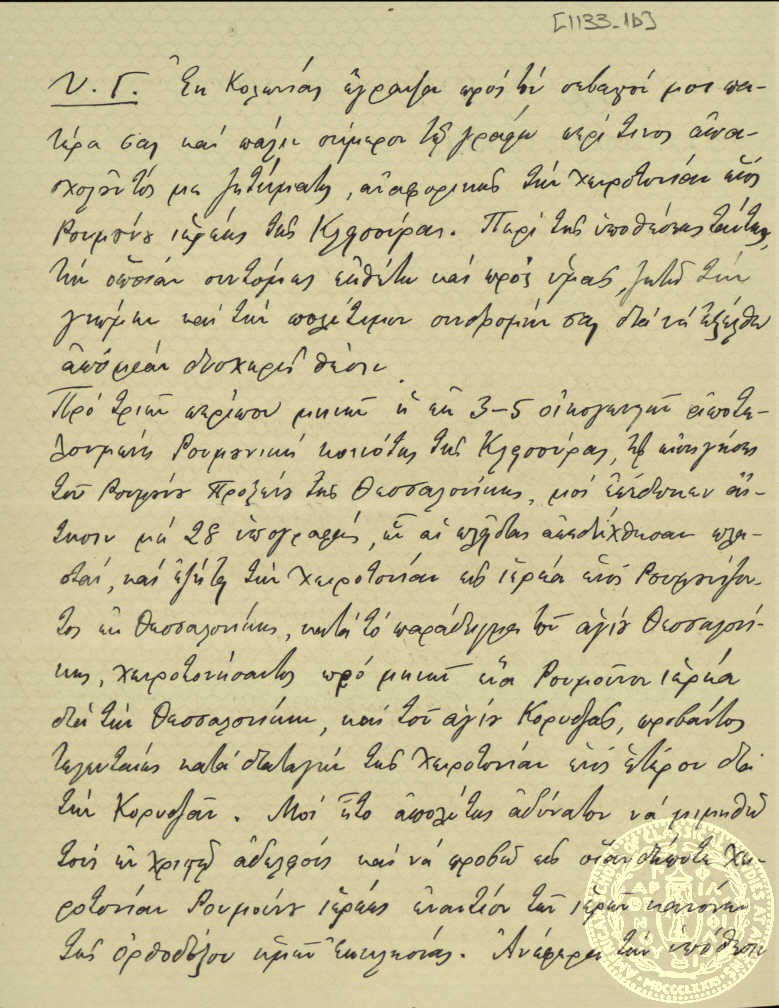 [1133-1b]
Υ.Γ. Ἐκ Κολωνίας ἔγραψα πρός τόν σεβαστόν μοι πα-
τέρα σας καί πάλιν σήμερον τῷ γράφω περί τινος ἀπα-
σχολοῦντός με ζητήματος, ἀναφορικῶς τήν χειροτονίαν ἑνός
Ρουμούνου ἱερέως τῆς Κλεισούρας. Περί τῆς ὑποθέσεως ταύτης,
τήν ὁποίαν συντόμως ἐκθέτω καί πρός ὑμᾶς, ζητῶ τήν
γνώμην καί τήν πολύτιμον συνδρομήν σας διά νά ἐξέλθω
ἀπό μίαν δυσχερῆ θέσιν.
Πρό τριῶν περίπου μηνῶν ἡ ἐκ 3-5 οἰκογενειῶν ἀποτε-
λουμένη Ρουμουνική κοινότης τῆς Κλεισούρας, τῇ εἰσηγήσει
τοῦ Ρουμούνου Προξένου τῆς Θεσσαλονίκης, μοί ἐπέδωκεν αἴ-
τησιν μέ 28 ὑπογραφάς, ὧν αἱ πλεῖσται ἀπεδείχθησαν πλα-
σταί, καί ἐζήτει τήν χειροτονίαν εἰς ἱερέα ἑνός Ρουμουνίζον-
τος ἐκ Θεσσαλονίκης, κατά τό παράδειγμα τοῦ ἁγίου Θεσσαλονί-
κης, χειροτονήσαντος πρό μηνῶν ἕνα Ρουμοῦνον ἱερέα
διά τήν Θεσσαλονίκην, καί τοῦ ἁγίου Κορυτσᾶς, προβάντος
τελευταίως κατά διαταγήν τῆς χειροτονίαν ἑνός ἑτέρου διά
τήν Κορυτσᾶν. Μοί ἦτο ἀπολύτως ἀδύνατον νά μιμηθῶ
τούς ἐν Χριστῷ ἀδελφούς καί νά προβῶ εἰς οἱανδήποτε χει-
ροτονίαν Ρουμούνου ἱερέως ἐναντίον τῶν ἱερῶν κανόνων
τῆς ὀρθοδόξου ἡμῶν Ἐκκλησίας. Ἀνέφερα τήν ὑπόθεσιν